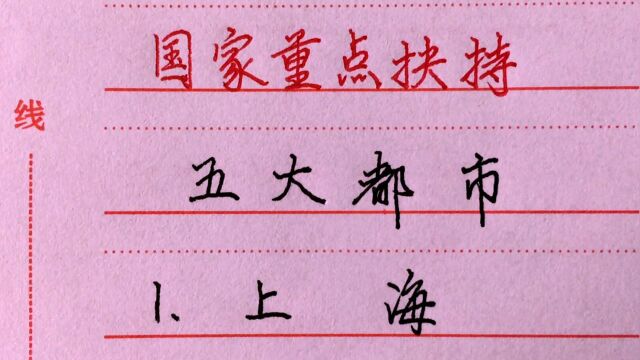 国家重点扶持
线
五大都市
1、上海